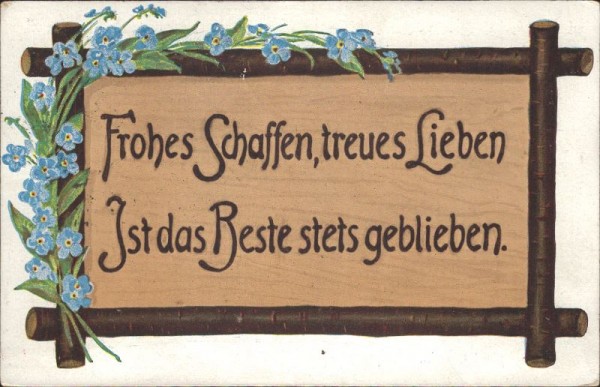 Frohes Schaffen, treues Lieben
Ist das Beste stets geblieben.